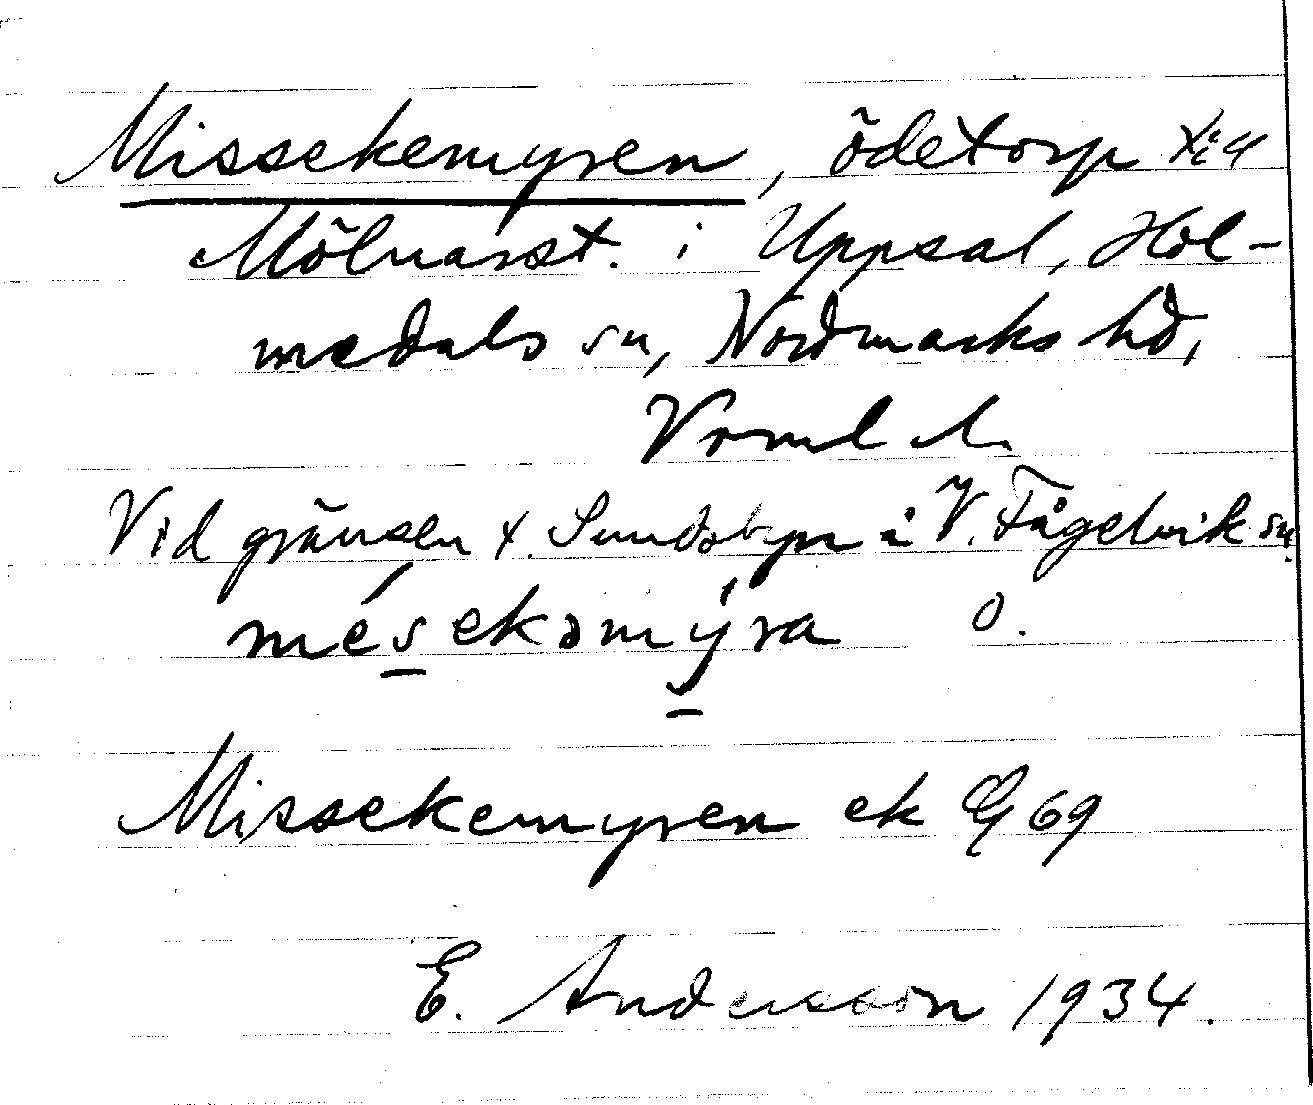 Missekemyren, ödetorp t. ä
Mölnarst. i Uppsal, Hol-
medals sn, Nordmarks hd,
Vrml l.
Vid gränsen t. Sundsbyn å V. Fågelvik sn.
mésekəmýra O.
Missekemyren ek Gj 69
E. Andersson 1934.